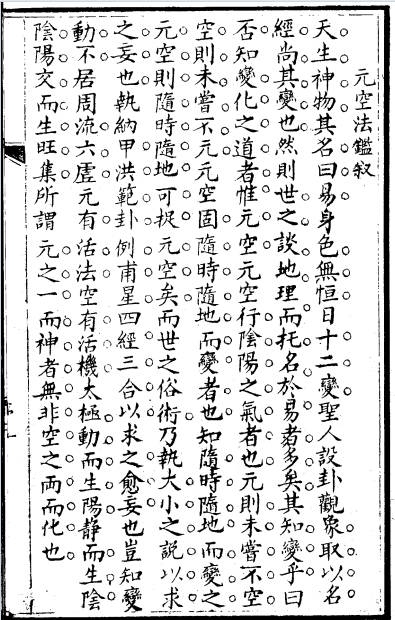 元空法鑑叙
天生神物其名曰易身色無恒日十二變聖人設卦觀象取以名
經尚其變也然則世之談地理而托名於易者多矣其知變乎曰
否知變化之道者惟元空元空行陰陽之氣者也元則未嘗不空
空則未嘗不元元空固隨時隨地而變者也知隨時隨地而變之
元空則隨時隨地可捉元空矣而世之俗術乃執大小之說以求
之妄也執納甲洪範卦例甫星四經三合以求之愈妄也豈知變
動不居周流六虛元有活法空有活機太極動而生陽靜而生陰
陰陽交而生旺集所謂元之一而神者無非空之两而化也